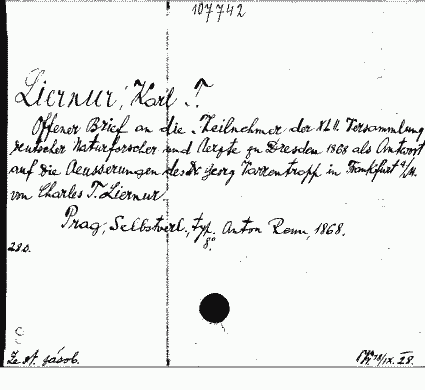 107742
Liernur, Karl T.
Offener Brief an die Theilnehmer der XLII. Versammlung
deutscher Naturforscher und Aerzte zu Dresden 1868 als Antwort
auf die Aeusserungen des Dr Georg Varrentrapp in Frankfurt a/M.
von Charles T. Liernur.
Prag, Selbstverl., typ. Anton Renn, 1868.
8°
28 s.
Ze st. fásob.
IX. 28.